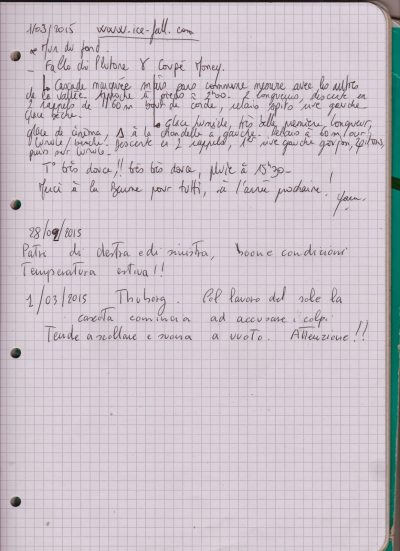 1/03/2015 www.ice-fall.com
Mur du fond
- Fallo di Plutone & Coupé Money.
↳ Cascade marquée mais sans commune mesure avec les autres
de la vallée. Approche à pieds à 2h00. 2 longueurs, descente en
2 rappels de 60m bout de corde, relais spits rive gauche.
glace sèche.
↳ glace humide, très belle première longueur,
glace de cinéma, ⚠ à la chandelle à gauche. Relais à 60m sur
Descente en 2 rappels, 1er rive gauche
puis sur
T° très douce,!! très très douce, pluie à 15h30.
Merci à la Baume pour tutti, à l'année prochaine!
28/02/2015
Patri di destra e di sinistra, buone condizioni
Temperatura estiva!!
1/03/2015 Thuborg. Col lavoro del sole la
cascata comincia ad accusare i colpi.
Tende a scollare e suona a vuoto. Attenzione!!